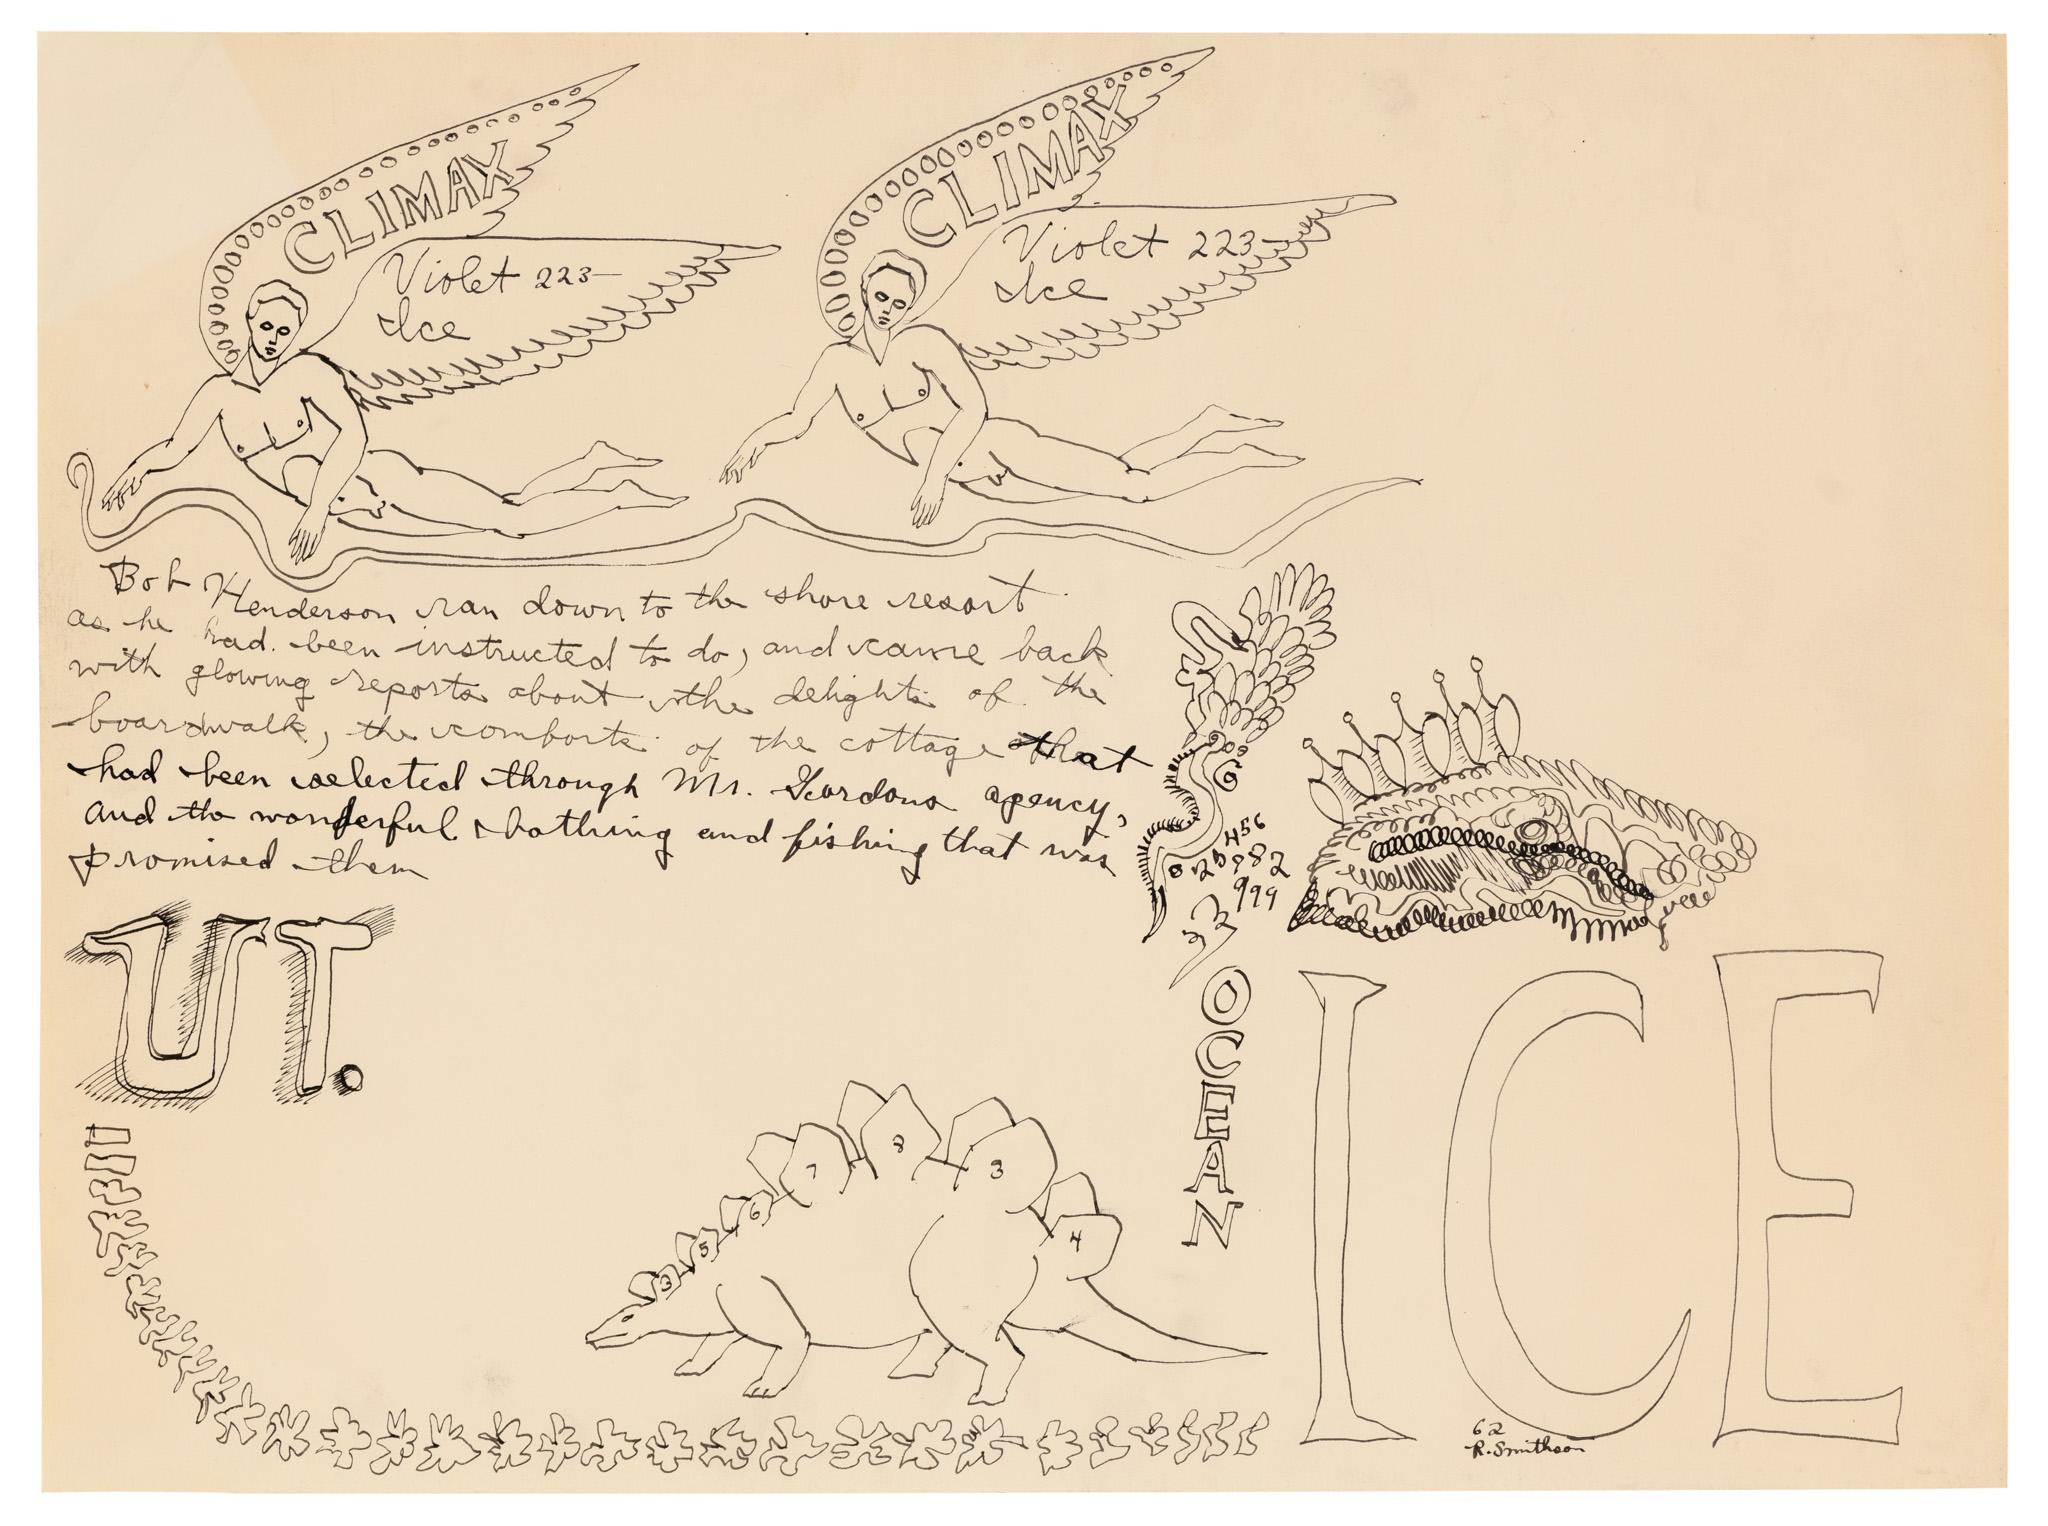 CLIMAX
Violet 223
Ice
CLIMAX
Violet 223
Ice
Bob Henderson ran down to the shore resort
as he had been instructed to do, and came back
with glowing reports about the delights of the
boardwalk, the comforts of the cottage that
had been selected through Mr. Gordons agency,
and the wonderful bathing and fishing that was
promised them
456
882
999
UT.
OCEAN
ICE
3
5
6
7
8
3
4
62
R. Smithson